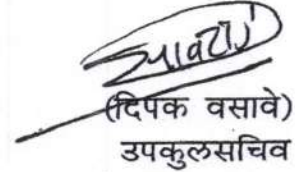 (दिपक वसावे)
उपकुलसचिव